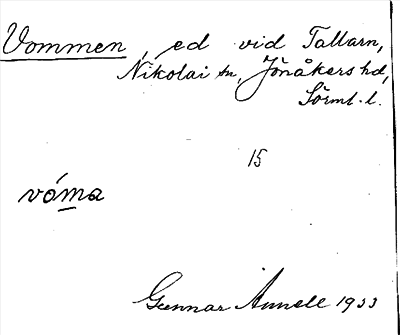 Vommen, ed vid Tallarn,
Nikolai sn, Jönåkers hd,
Sörml. l.
15
vóma
Gunnar 1933